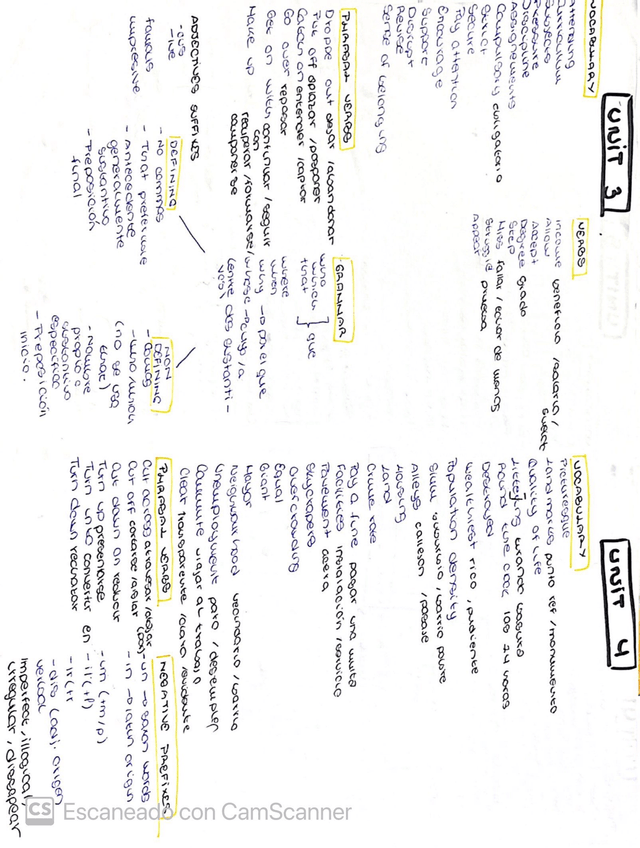 UNIT 3
VOCABULARY
Attending
Curriculum
Pressure
Discipline
Assignements
Compulsory obligatorio
Strict
Secure
Pay attention
Encourage
Support
Disrupt
Revise
Sense of belonging
VERBS
Income beneficio /salario /
Allow
Accept
Degree grado
Step
Miss fallar / echar de menos
Struggle
Appear
PHRASAL VERBS
Droppe out dejar /abandonar
Put off aplazar /posponer
Catch on entender /captar
Go over repasar
Get on with continuar /seguir
con
Make up recuperar /formarse/
componerse
GRAMMAR
who
which
that
} que
where
when
why → por el que
whose → cuyo/a
(entre dos sustanti-
vos)
ADJECTIVES SUFFIXES
-ous
-ive
famous
impressive
DEFINING
- No commas
- That preferable
- Antecedente
generalmente
sustantivo
- Preposición
final
NON
DEFINING
- Commas
- who/which
(no se usa
that)
- Nombre
propio o
sustantivo
específico
- Preposición
inicio.
UNIT 4
VOCABULARY
Picturesque
Landmarks punto ref /monumento
Quality of life
Littering tirando basura
Round the clock las 24 horas
Destroyed
Wealthiest rico, pudiente
Population density
Slum suburbio /barrio pobre
Alleys callejón /pasaje
Housing
Land
Crime rate
Pay a fine pagar una multa
Facilities instalación /servicio
Pavement acera
Skycrapers
Overcrowding
Equal
Giant
Mayor
Neighbourhood vecindario /barrio
Unemployment paro /desempleo
Commute viajar al trabajo
Clear transparente /claro /evidente
PHRASAL VERBS
Cut across atravesar /atajar
Cut off cortarse /aislar
Cut down on reducir
Turn up presentarse
Turn into convertir en
Turn down rechazar
NEGATIVE PREFIXES
-un → saxon words
-in → latin origin
-im (+m/p)
-il (+l)
-ir (+r
-dis (adj. origen
verbal
Imperfect, illogical,
irregular, disappear
CS Escaneado con CamScanner